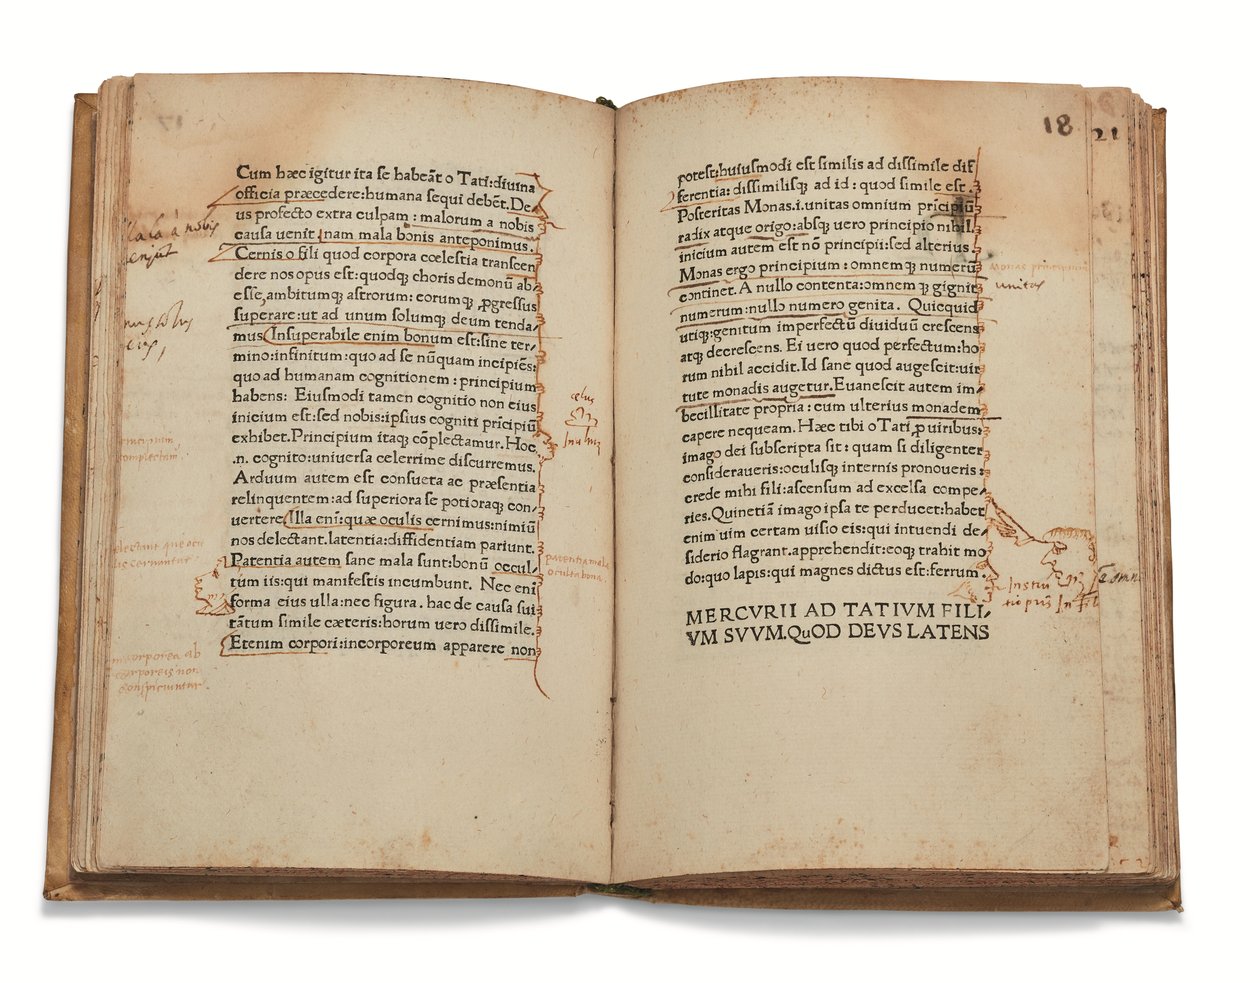 Cum hæc igitur ita se habeāt o Tati:diuina
officia præcedere:humana sequi debēt.De
us profecto extra culpam : malorum a nobis
causa uenit.nam mala bonis anteponimus.
Cernis o fili quod corpora cœlestia transcen
dere nos opus est:quodq; choris demonū ab
esse,ambitumq; astrorum: eorumq; ꝓgressus
superare:ut ad unum solumq; deum tenda/
mus.Insuperabile enim bonum est:sine ter/
mino:infinitum:quo ad se nūquam incipiēs:
quo ad humanam cognitionem : principium
habens: Eiusmodi tamen cognitio non eius
inicium est:sed nobis:ipsius cogniti prīcipiū
exhibet.Principium itaq; cōplectamur. Hoc
.n. cognito:uniuersa celerrime discurremus.
Arduum autem est consueta ac præsentia
relinquentem:ad superiora se potioraq; con/
uertere.Illa enī:quæ oculis cernimus:nimiū
nos delectant.latentia:diffidentiam pariunt.
Patentia autem sane mala sunt:bonū occul/
tum iis:qui manifestis incumbunt. Nec enī
forma eius ulla:nec figura. hac de causa sui
tātum simile cæteris:horum uero dissimile.
Etenim corpori:incorporeum apparere non
à nobis
principium
complectam
delectant que ocu
lis cernuntur
incorporea ab
corporeis non
conspiciuntur.
patentia mala
occulta bona.
18
21
potest:huiusmodi est similis ad dissimile dif
ferentia: dissimilisq; ad id : quod simile est.
Posteritas Monas.i.unitas omnium prīcipiū
radix atque origo:absq; uero principio nihil.
inicium autem est nō principii:sed alterius.
Monas ergo principium : omnemq; numerū
continet. A nullo contenta:omnemq; gignit
numerum:nullo numero genita. Quicquid
utiq;:genitum imperfectū diuiduū crescens
atq; decrescens. Ei uero quod perfectum:ho
rum nihil accidit.Id sane quod augescit:uir
tute monadis augetur.Euanescit autem im/
becillitate propria : cum ulterius monadem
capere nequeam. Hæc tibi o Tati,ꝓ uiribus:
imago dei subscripta sit : quam si diligenter
consideraueris:oculisq; internis pronoueris :
crede mihi fili:ascensum ad excelsa compe/
ries.Quinetiā imago ipsa te perducet:habet
enim uim certam uisio eis:qui intuendi de/
siderio flagrant.apprehendit:eoq; trahit mo
do:quo lapis:qui magnes dictus est:ferrum.
MERCVRII AD TATIVM FILI/
VM SVVM.QuOD DEVS LATENS
Monas principium
unitas